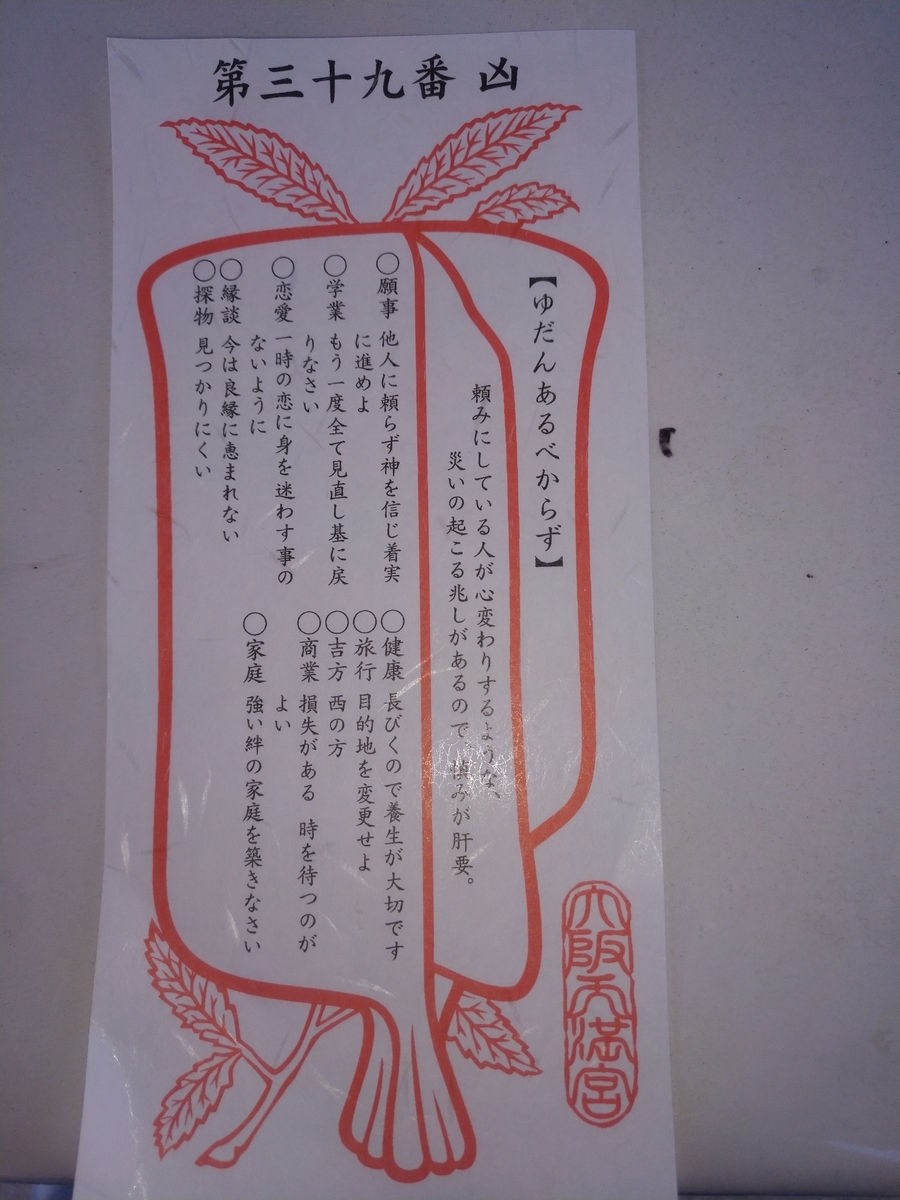 第三十九番 凶
【ゆだんあるべからず】
頼みにしている人が心変わりするような、
災いの起こる兆しがあるので、慎みが肝要。
○願事 他人に頼らず神を信じ着実
に進めよ
○学業 もう一度全て見直し基に戻
りなさい
○恋愛 一時の恋に身を迷わす事の
ないように
○縁談 今は良縁に恵まれない
○探物 見つかりにくい
○健康 長びくので養生が大切です
○旅行 目的地を変更せよ
○吉方 西の方
○商業 損失がある 時を待つのが
よい
○家庭 強い絆の家庭を築きなさい
大阪天満宮